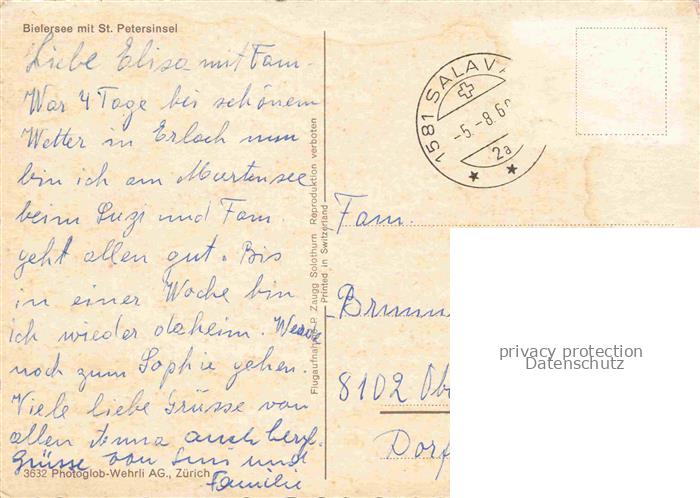 Bielersee mit St. Petersinsel
Liebe Elisa mit Fam.
War 4 Tage bei schönem
Wetter in Erlach nun
bin ich am Murtensee
beim Luzi und Fam.
geht allen gut. Bis
in einer Woche bin
ich wieder daheim. Werde
noch zum Sophie gehen.
Viele liebe Grüsse von
allen Anna auch herzl.
Grüsse von und
Familie
3632 Photoglob-Wehrli AG., Zürich
Flugaufnahme P. Zaugg Solothurn Reproduktion verboten
Printed in Switzerland
1581 SALAV
-5.-8.6
2a
Fam.
Brunn
8102 Obe
Dorf
privacy protection
Datenschutz